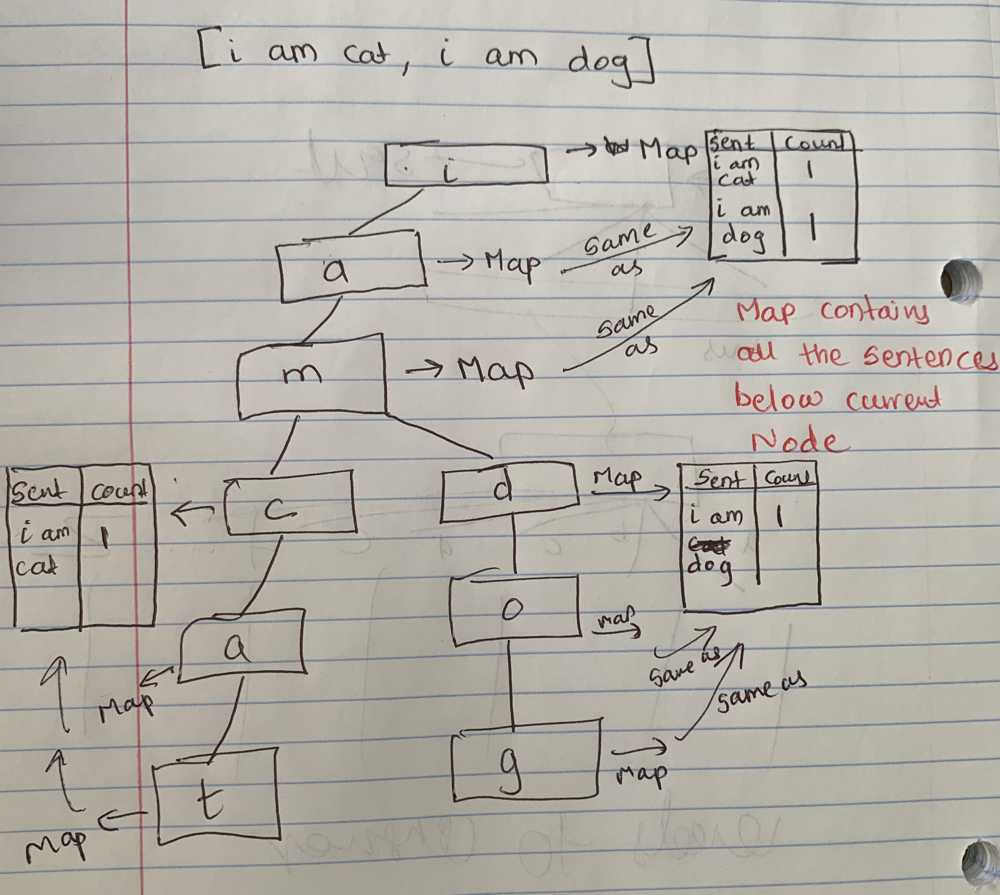 [i am cat, i am dog]
i
Map
Sent Count
i am
cat 1
i am
dog 1
a
Map
same
as
m
Map
same
as
Map contains
all the sentences
below current
Node
Sent Count
i am 1
cat
c
d
Map
Sent Count
i am 1
dog
a
Map
o
Map
same as
t
Map
g
Map
same as